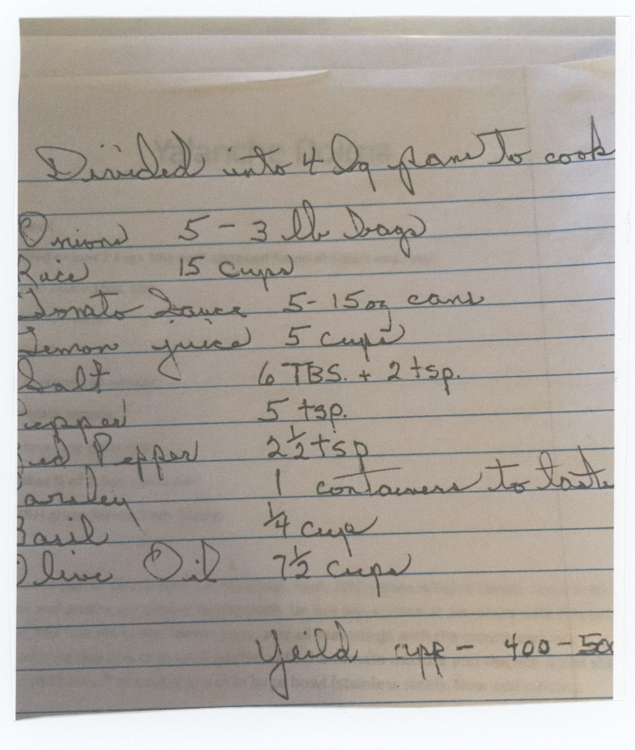 Divided into 4 lg pans to cook
Onions 5 - 3 lb bags
Rice 15 cups
Tomato Sauce 5 - 15 oz cans
Lemon juice 5 cups
Salt 6 TBS. + 2 tsp.
Pepper 5 tsp.
Red Pepper 2½ tsp
Parsley 1 containers to taste
Basil ¼ cup
Olive Oil 7½ cups
Yeild app - 400 - 50